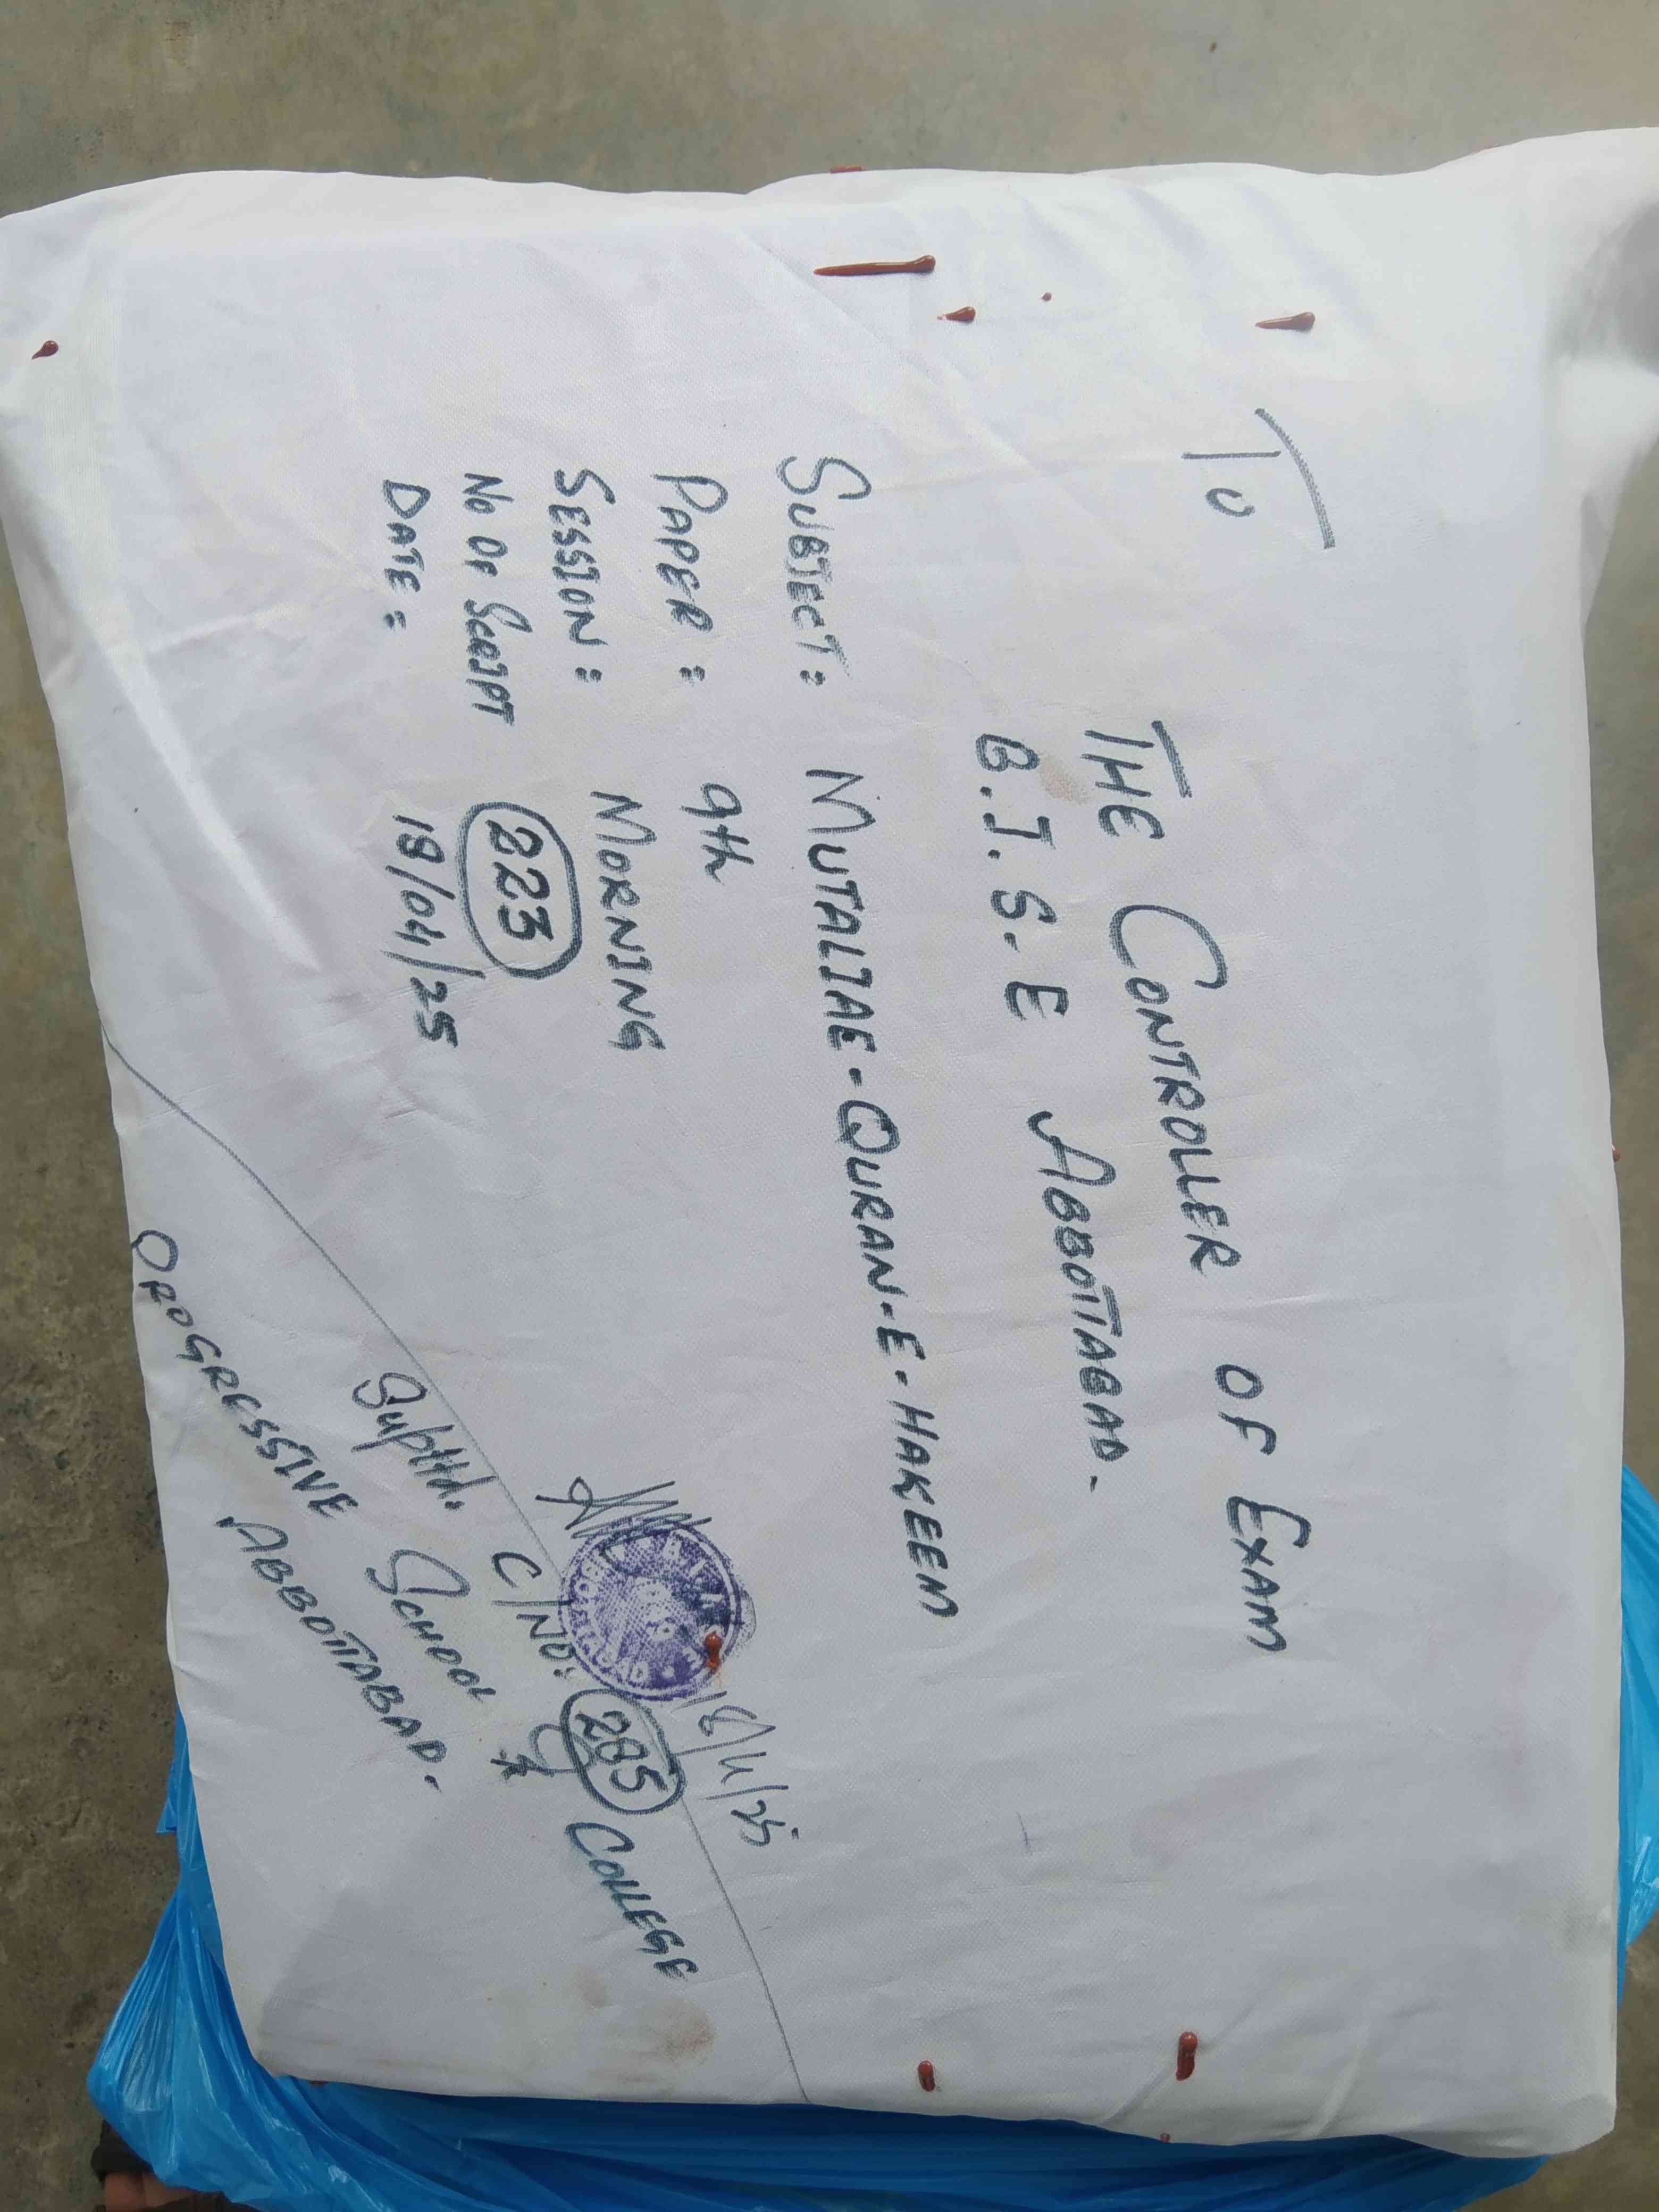 To
THE CONTROLLER OF EXAM
B.I.S.E ABBOTTABAD.
SUBJECT: MUTALIAE-QURAN-E-HAKEEM
PAPER: 9th
SESSION: MORNING
NO OF SCRIPT 223
DATE: 18/04/25
18/4/25
Suptd. C/NO: 285
PROGRESSIVE SCHOOL & COLLEGE
ABBOTTABAD.